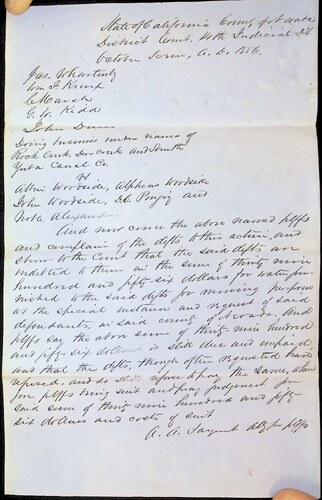 State of California County of Nevada
District Court 14th Judicial Dt
October Term, A. D. 1856.
Jas. Whartenby
Wm J. Knox
C. Marsh
G. W. Kidd
John Dunn
Doing business under name of
Rock Creek, Deer Creek and South
Yuba Canal Co.
vs
Allen Woodside, Alpheus Woodside
John Woodside, and
Alexander
And now come the above named plffs
and complain of the defts to this action, and
show to the Court that the said defts are
indebted to them in the sum of thirty nine
hundred and fifty-six dollars for water fur-
nished to the said defts for mining purposes
at the special instance and request of said
defendants, in said county of Nevada. And
plffs say the above sum of thirty-nine hundred
and fifty-six dollars is still due and unpaid,
and that the defts, though often requested have
refused, and do still refuse to pay the same, where-
fore plffs bring suit and pray judgment for
said sum of thirty-nine hundred and fifty-
six dollars and costs of suit
A. A. Sargent atty for plffs